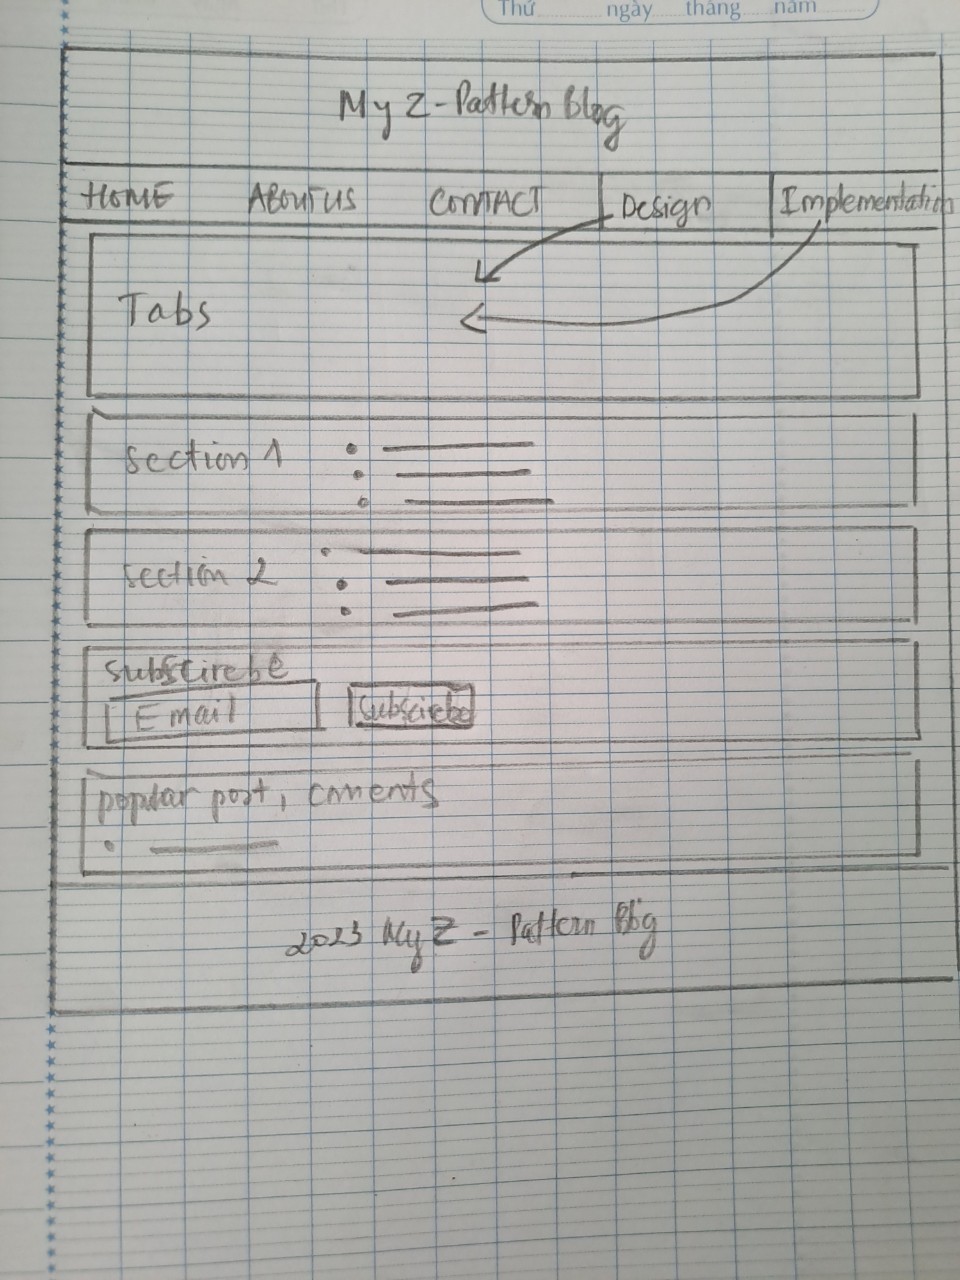 Thứ ngày tháng năm
My Z-Pattern Blog
HOME ABOUT US CONTACT Design Implementation
Tabs
section 1
section 2
subscirebe
Email subscirebe
popular post, coments
2023 My Z - Pattern Blog